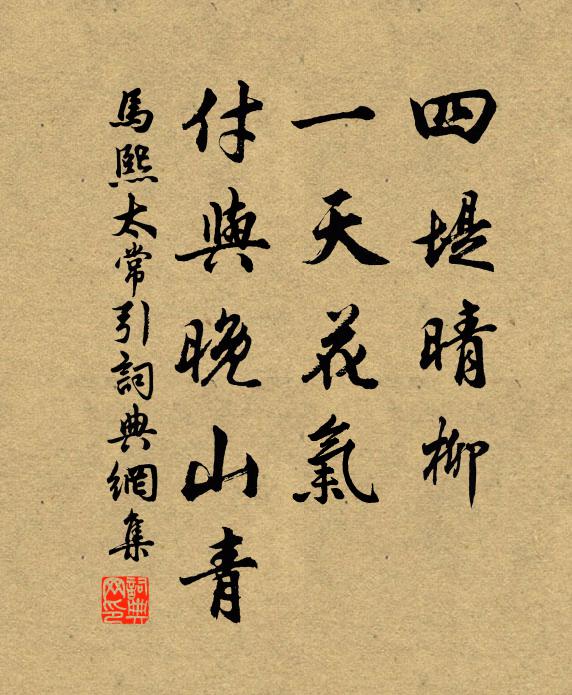 四堤晴柳
一天花氣
付與晚山青
馬熙太常引詞典網集
詞典网印